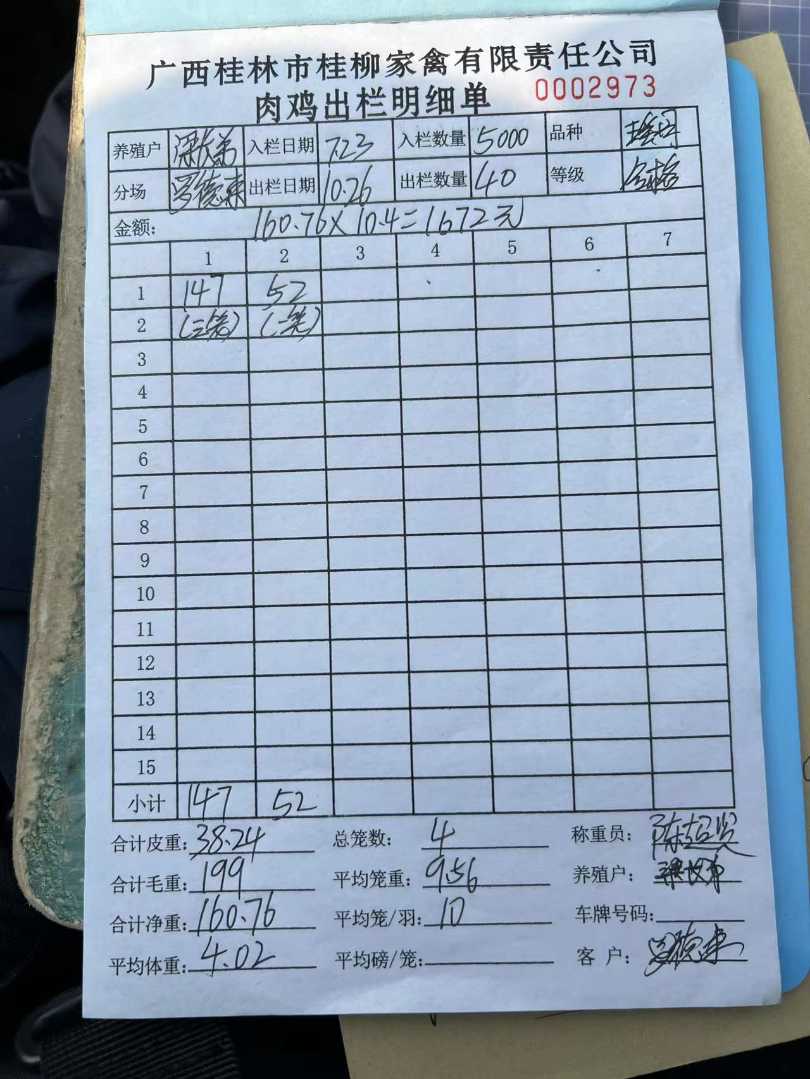 广西桂林市桂柳家禽有限责任公司
肉鸡出栏明细单 0002973
养殖户 入栏日期 7.23 入栏数量 5000 品种
分场 罗德来 出栏日期 10.26 出栏数量 40 等级 合格
金额: 160.76×10.4=1672元
1 2 3 4 5 6 7
1 147 52
2 (三笼) (一笼)
3
4
5
6
7
8
9
10
11
12
13
14
15
小计 147 52
合计皮重: 38.24 总笼数: 4 称重员:
合计毛重: 199 平均笼重: 9.56 养殖户:
合计净重: 160.76 平均笼/羽: 10 车牌号码:
平均体重: 4.02 平均磅/笼: 客户: 罗德来